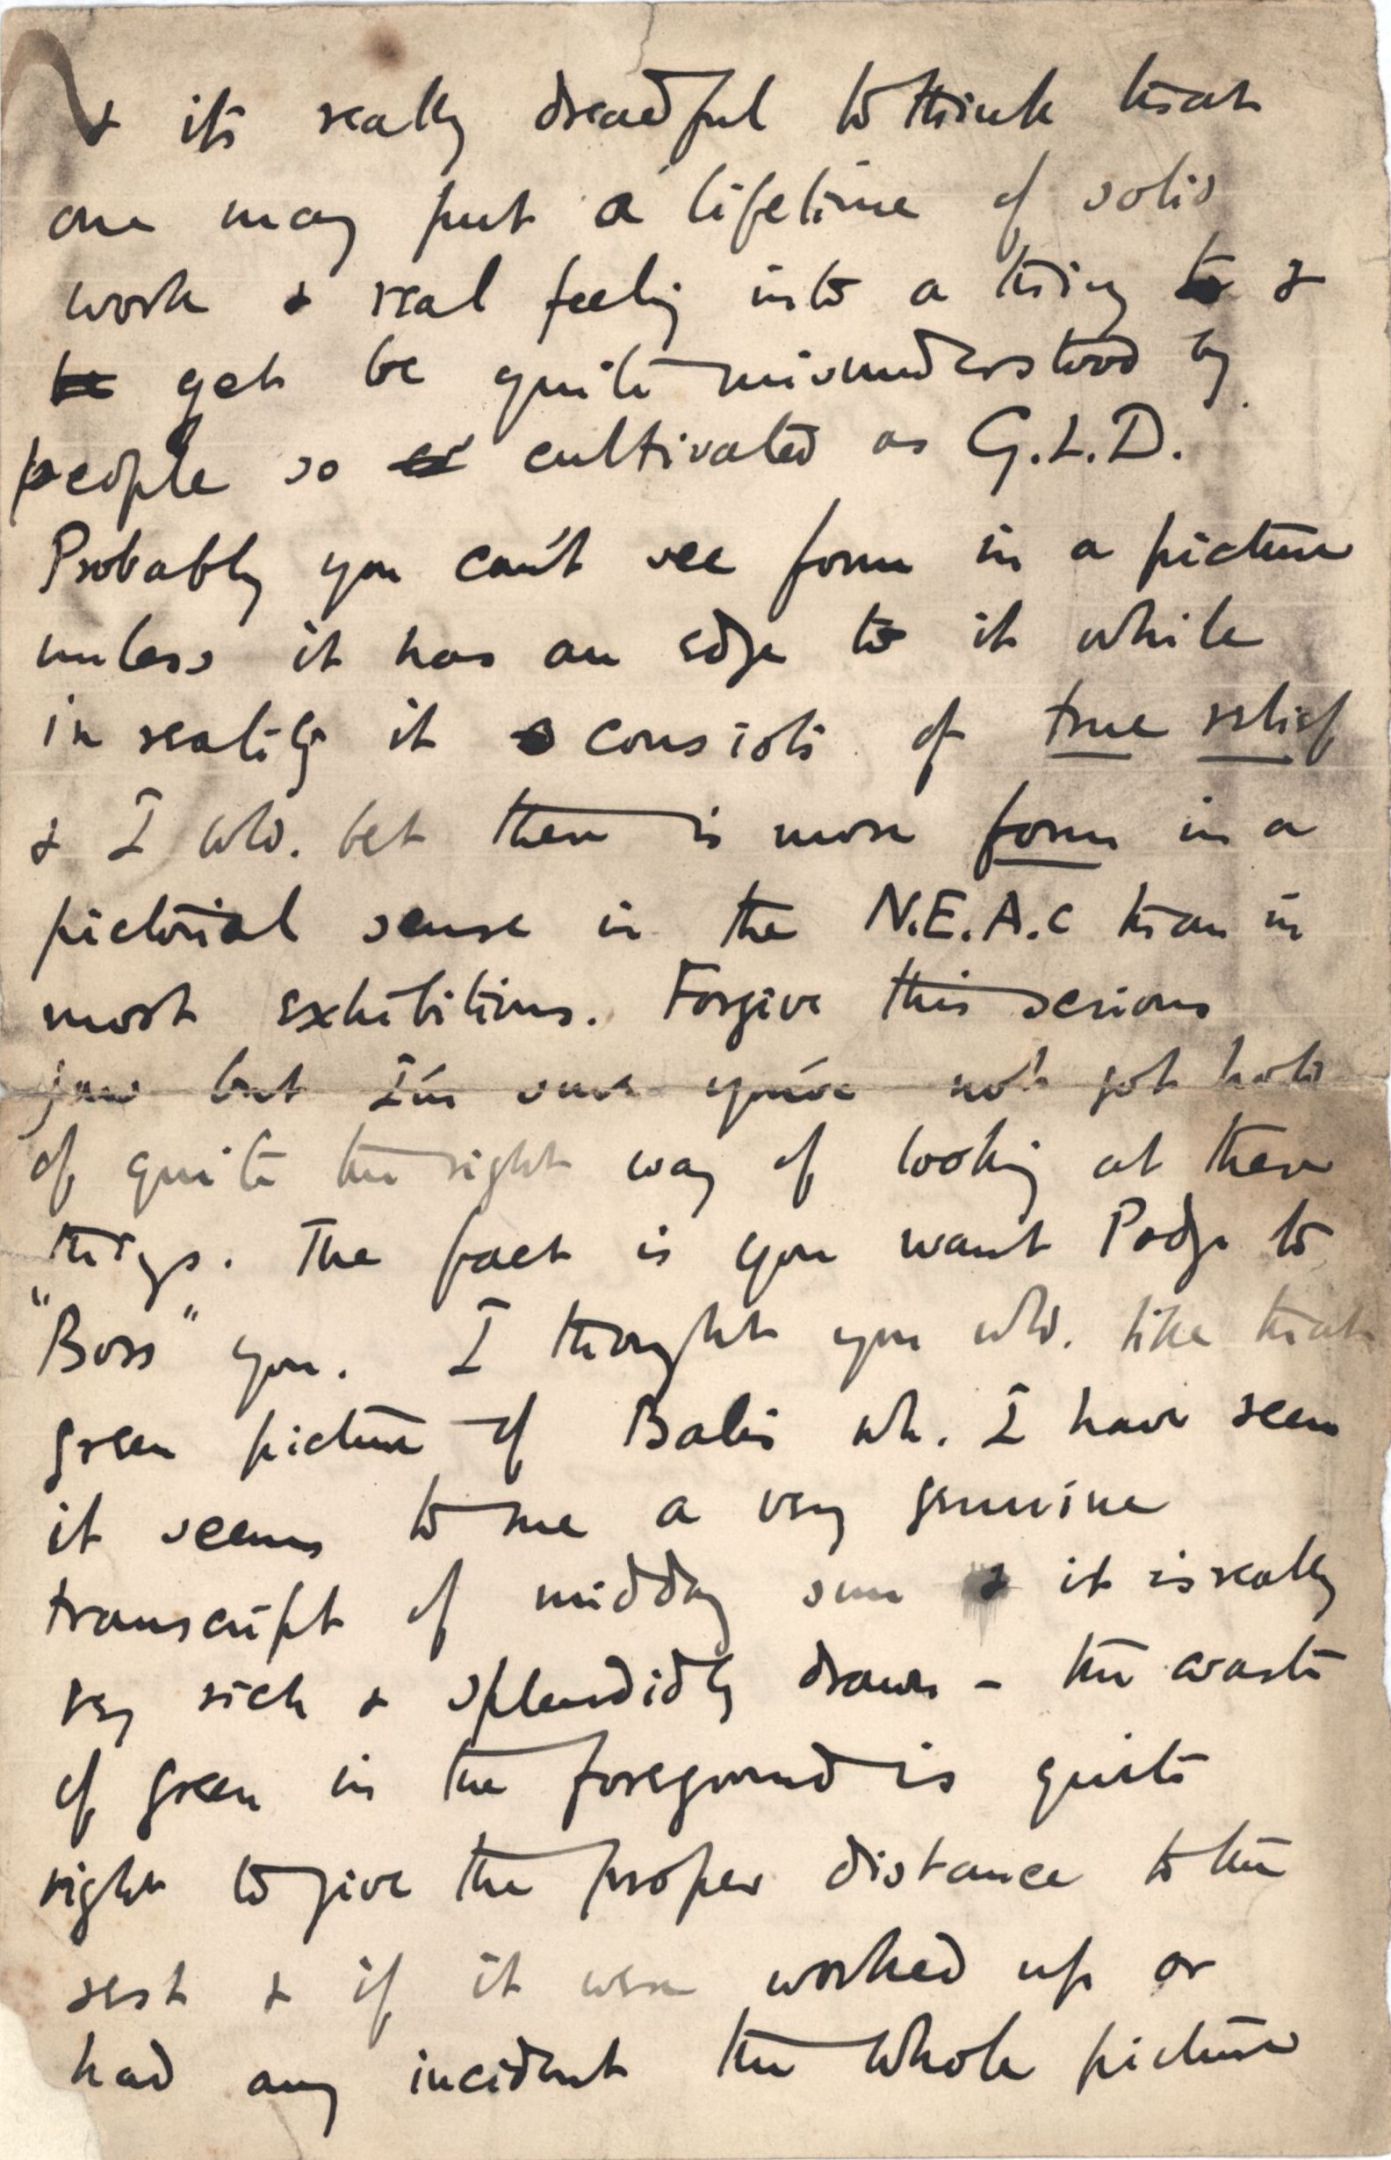 & it's really dreadful to think that
one may put a lifetime of solid
work & real feeling into a thing to &
be yet be quite misunderstood by
people so cultivated as G.L.D.
Probably you can't see form in a picture
unless it has an edge to it while
in reality it consists of true relief
& I wld. bet there is more form in a
pictorial sense in the N.E.A.C than in
most exhibitions. Forgive this serious
jaw but I'm sure you've not got hold
of quite the right way of looking at these
things. The fact is you want Podge to
"Boss" you. I thought you wld. like that
green picture of Bates wh. I have seen
it seems to me a very genuine
transcript of midday sun & it is really
very rich & splendidly drawn – the waste
of green in the foreground is quite
right to give the proper distance to the
rest & if it were worked up or
had any incident the whole picture